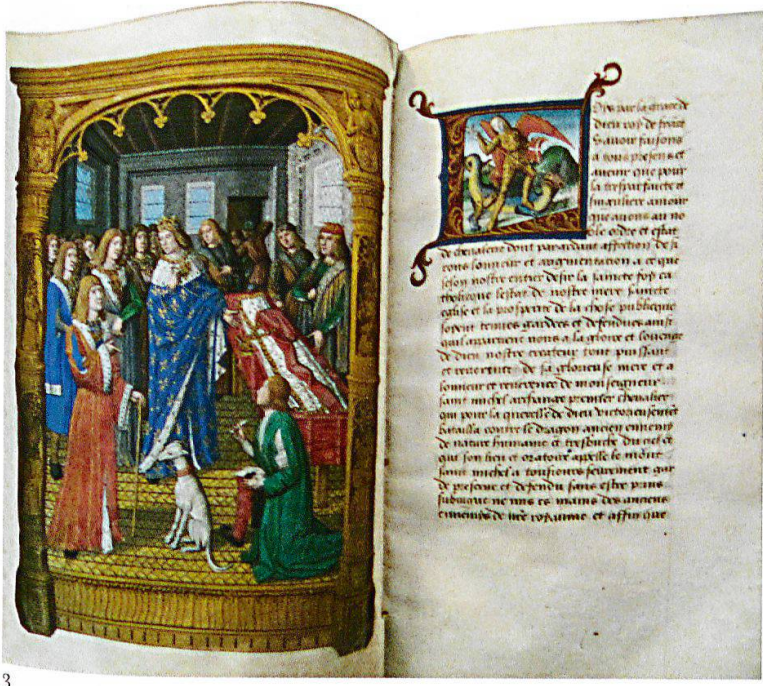 Loys par la grace de
dieu roy de france
Savoir faisons
a tous presens et
avenir que pour
la tresparfaicte et
singuliere amour
que avons au no
ble ordre et estat
de chevalerie dont par ardant affection de si
rons lonneur et augmentation a ce que
selon nostre entier desir la saincte foy ca
tholicque lestat de nostre mere saincte
eglise et la prosperite de la chose publicque
soyent tenues gardees et defendues ainsi
quil appartient nous a la gloire et louenge
de dieu nostre createur tout puissant
et reverence de sa glorieuse mere et a
lonneur et reverence de monseigneur
saint michel archange premier chevalier
qui pour la querelle de dieu
batailla contre le dragon ancien ennemy
de nature humaine et tresbucha du ciel et
qui son lieu et oratoire appelle le mont
saint michel a tousiours seurement gar
de preserve et defendu sans estre prins
subiugue ne mis es mains des anciens
ennemys de nre royaume et affin que
3